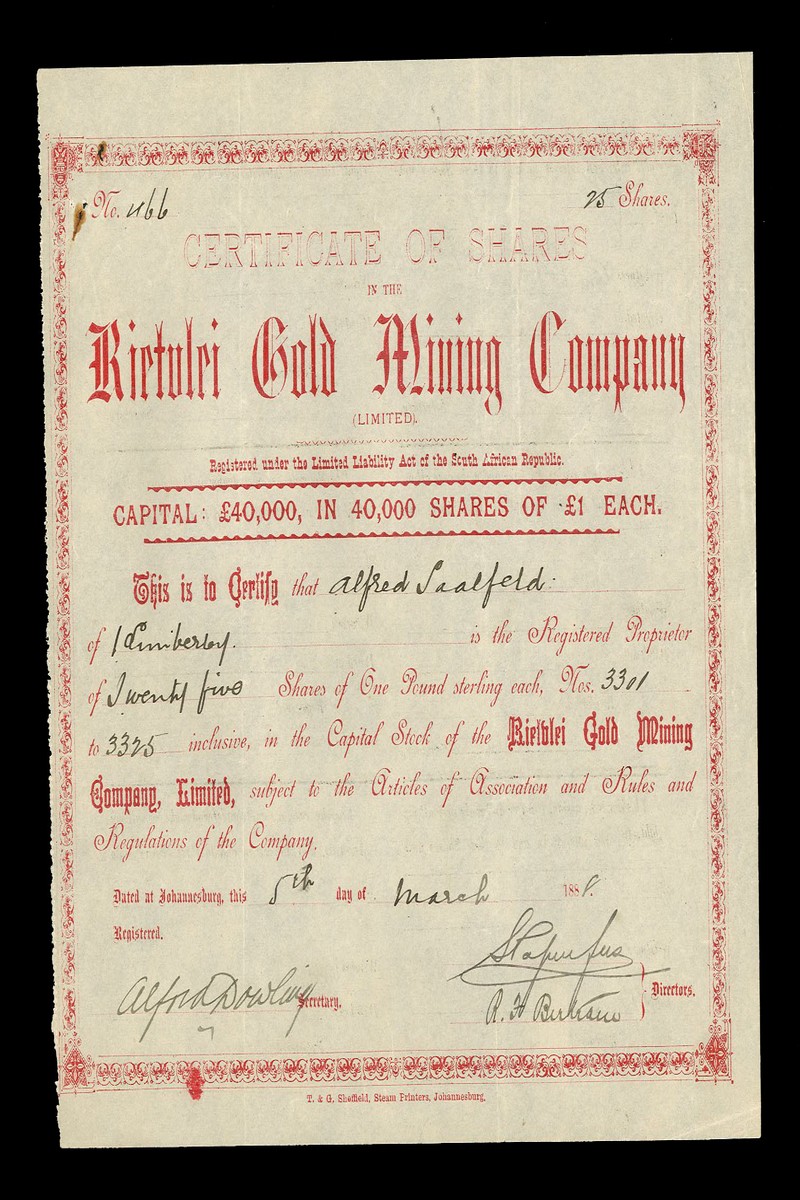 No. 466 25 Shares.
CERTIFICATE OF SHARES
IN THE
Rietvlei Gold Mining Company
(LIMITED).
Registered under the Limited Liability Act of the South African Republic.
CAPITAL: £40,000, IN 40,000 SHARES OF £1 EACH.
This is to Certify that Alfred Saalfeld.
of Kimberley. is the Registered Proprietor
of Twenty five Shares of One Pound sterling each, Nos. 3301
to 3325 inclusive, in the Capital Stock of the Rietvlei Gold Mining
Company, Limited, subject to the Articles of Association and Rules and
Regulations of the Company.
Dated at Johannesburg, this 5th day of March 188
Registered.
Alfred Dowling Secretary.
Directors.
R. H.
T. & G. Sheffield, Steam Printers, Johannesburg.